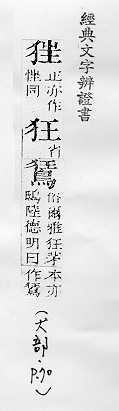 經典文字辨證書
𤝵正亦作
同
狂省
鵟俗爾雅狂茅本亦
鴟陸德明曰作鵟
(犬部·P.70)